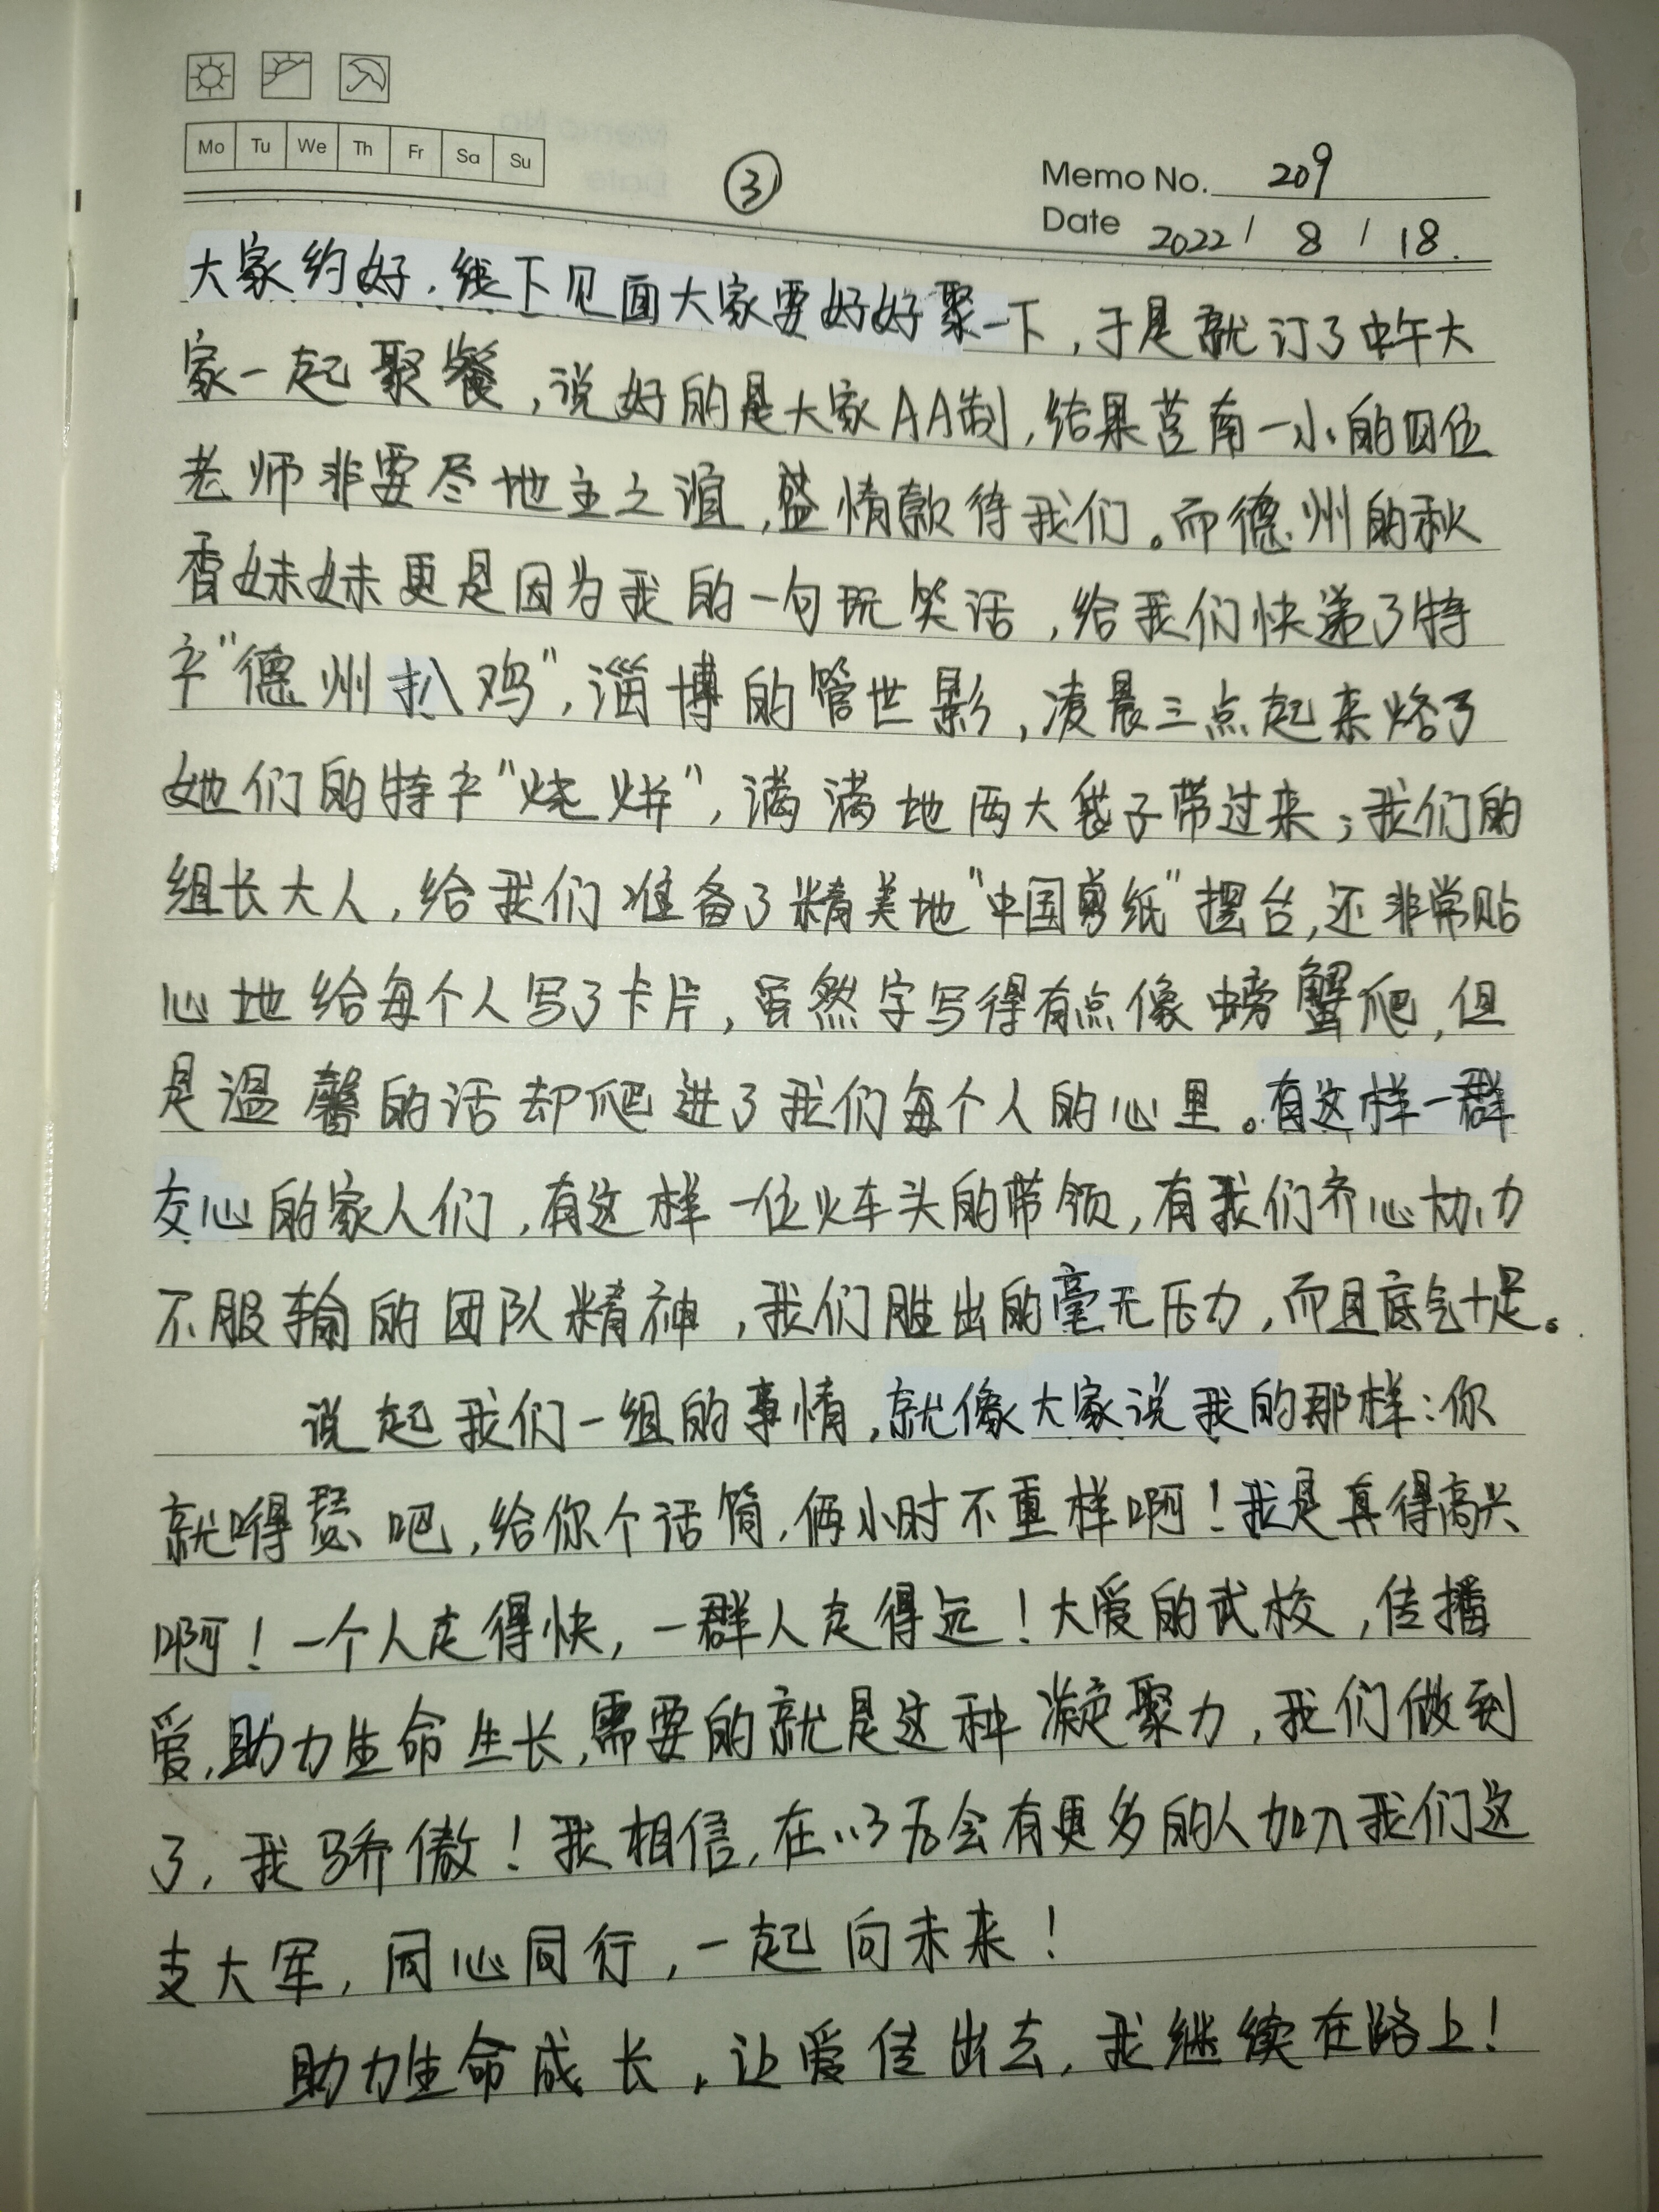 Mo Tu We Th Fr Sa Su
③
Memo No. 209
Date 2022 / 8 / 18.
大家约好,线下见面大家要好好聚一下,于是就订了中午大
家一起聚餐,说好的是大家AA制,结果莒南一小的四位
老师非要尽地主之谊,盛情款待我们。而德州的秋
香妹妹更是因为我的一句玩笑话,给我们快递了特
产"德州扒鸡",淄博的管世影,凌晨三点起来烙了
她们的特产"烧烤",满满地两大袋子带过来;我们的
组长大人,给我们准备了精美地"中国剪纸"摆台,还非常贴
心地给每个人写了卡片,虽然字写得有点像螃蟹爬,但
是温馨的话却爬进了我们每个人的心里。有这样一群
交心的家人们,有这样一位火车头的带领,有我们齐心协力
不服输的团队精神,我们胜出的毫无压力,而且底气十足。
说起我们一组的事情,就像大家说我的那样:你
就嘚瑟吧,给你个话筒,俩小时不重样啊!我是真得高兴
啊!一个人走得快,一群人走得远!大爱的武校,传播
爱,助力生命生长,需要的就是这种凝聚力,我们做到
了,我骄傲!我相信,在以后会有更多的人加入我们这
支大军,同心同行,一起向未来!
助力生命成长,让爱传出去,我继续在路上!